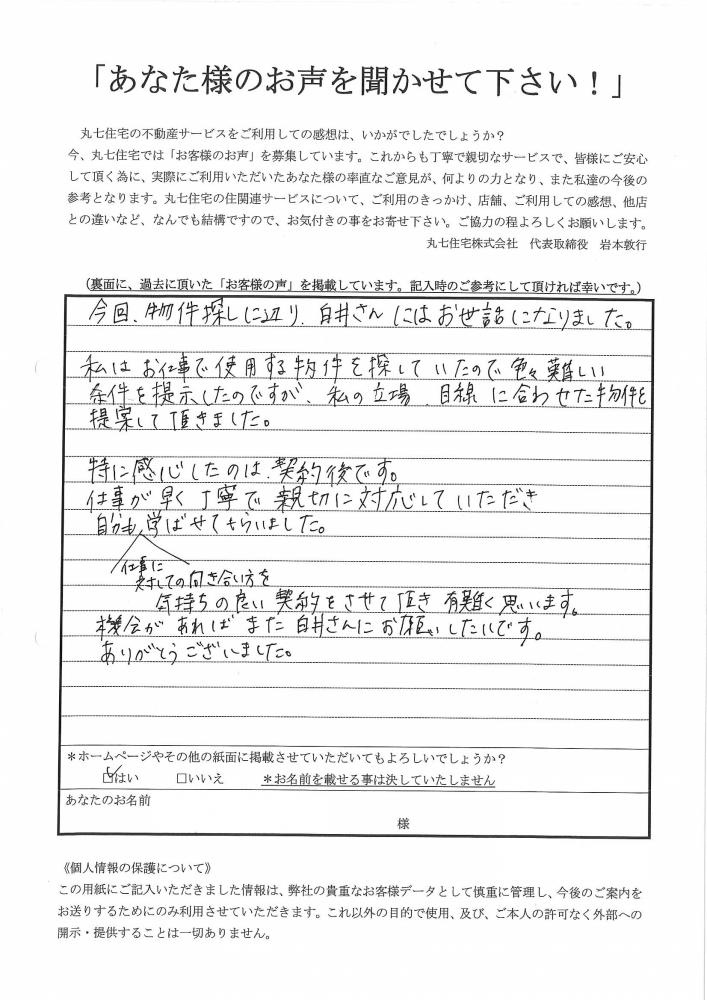 「あなた様のお声を聞かせて下さい！」
丸七住宅の不動産サービスをご利用しての感想は、いかがでしたでしょうか？
今、丸七住宅では「お客様のお声」を募集しています。これからも丁寧で親切なサービスで、皆様にご安心
して頂く為に、実際にご利用いただいたあなた様の率直なご意見が、何よりの力となり、また私達の今後の
参考となります。丸七住宅の住関連サービスについて、ご利用のきっかけ、店舗、ご利用しての感想、他店
との違いなど、なんでも結構ですので、お気付きの事をお寄せ下さい。ご協力の程よろしくお願いします。
丸七住宅株式会社　代表取締役　岩本敦行
（裏面に、過去に頂いた「お客様の声」を掲載しています。記入時のご参考にして頂ければ幸いです。）
今回、物件探しに辺り、白井さんにはお世話になりました。
私はお仕事で使用する物件を探していたので色々難しい
条件を提示したのですが、私の立場、目線に合わせた物件を
提案して頂きました。
特に感心したのは、契約後です。
仕事が早く丁寧で親切に対応していただき
自分も学ばせてもらいました。
仕事に
対しての向き合い方を
気持ちの良い契約をさせて頂き有難く思います。
機会があればまた白井さんにお願いしたいです。
ありがとうございました。
＊ホームページやその他の紙面に掲載させていただいてもよろしいでしょうか？
☑はい　□いいえ　＊お名前を載せる事は決していたしません
あなたのお名前
様
《個人情報の保護について》
この用紙にご記入いただきました情報は、弊社の貴重なお客様データとして慎重に管理し、今後のご案内を
お送りするためにのみ利用させていただきます。これ以外の目的で使用、及び、ご本人の許可なく外部への
開示・提供することは一切ありません。